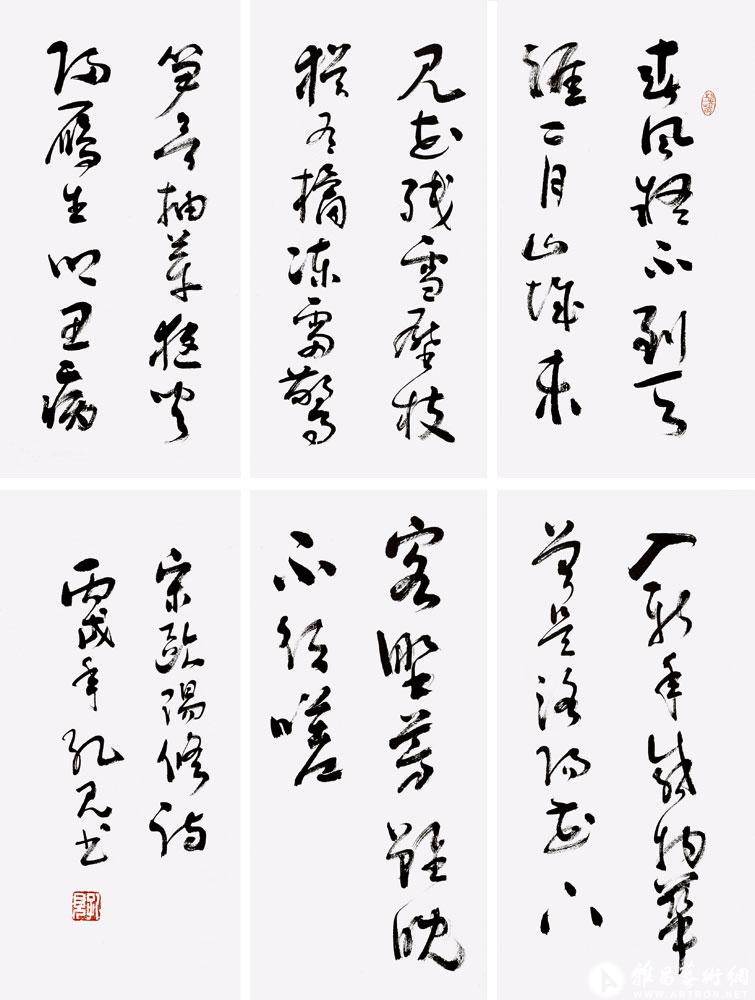 春風疑不到天
涯二月山城未
見花残雪壓枝
猶有橘凍雷驚
笋欲抽芽夜聞
歸雁生鄉思病
入新年感物華
曾是洛陽花下
客野芳雖晚
不須嗟
宋歐陽修詩
丙戌年孔見书
雅昌藝術網
WWW.ARTRON.NET